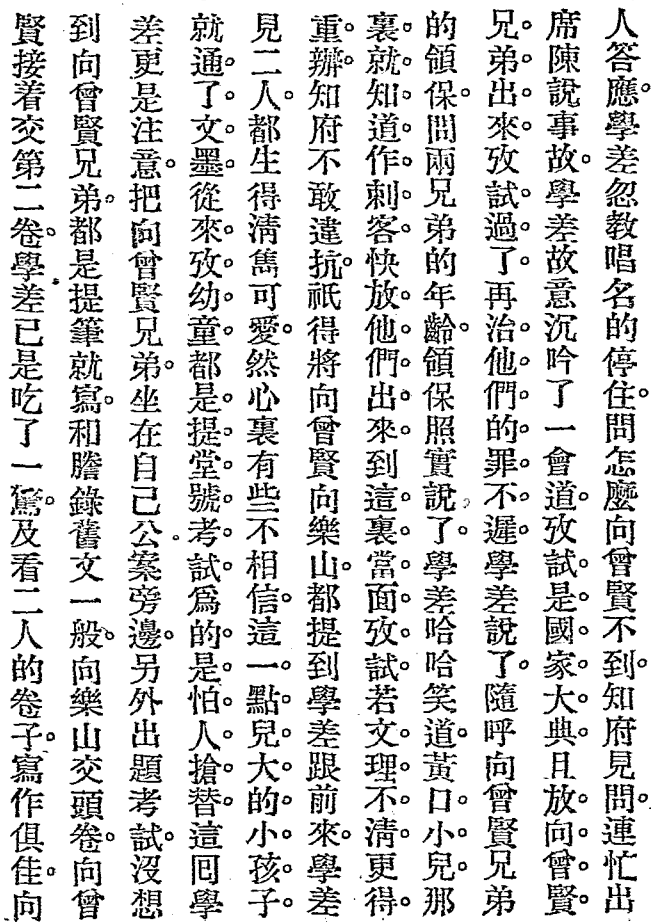 人答應。學差忽教唱名的停住。問怎麽向曾賢不到。知府見問。連忙出
席陳說事故。學差故意沉吟了一會道。攷試是國家大典。且放向曾賢
兄弟出來攷試過了。再治他們的罪不遲。學差說了。隨呼向曾賢兄弟
的領保。問兩兄弟的年齡。領保照實說了。學差哈哈笑道。黃口小兒。那
裏就知道作刺客。快放他們出來。到這裏當面攷試。若文理不淸。更得
重辦。知府不敢違抗。祇得將向曾賢向樂山都提到學差跟前來。學差
見二人。都生得淸雋可愛。然心裏有些不相信。這一點兒大的小孩子。
就通了文墨。從來攷幼童。都是提堂號考試。爲的是怕人搶替。這囘學
差更是注意。把向曾賢兄弟。坐在自己公案旁邊。另外出題考試。沒想
到向曾賢兄弟。都是提筆就寫。和謄錄舊文一般。向樂山交頭卷。向曾
賢接着交第二卷。學差已是吃了一驚。及看二人的卷子。寫作俱佳。向